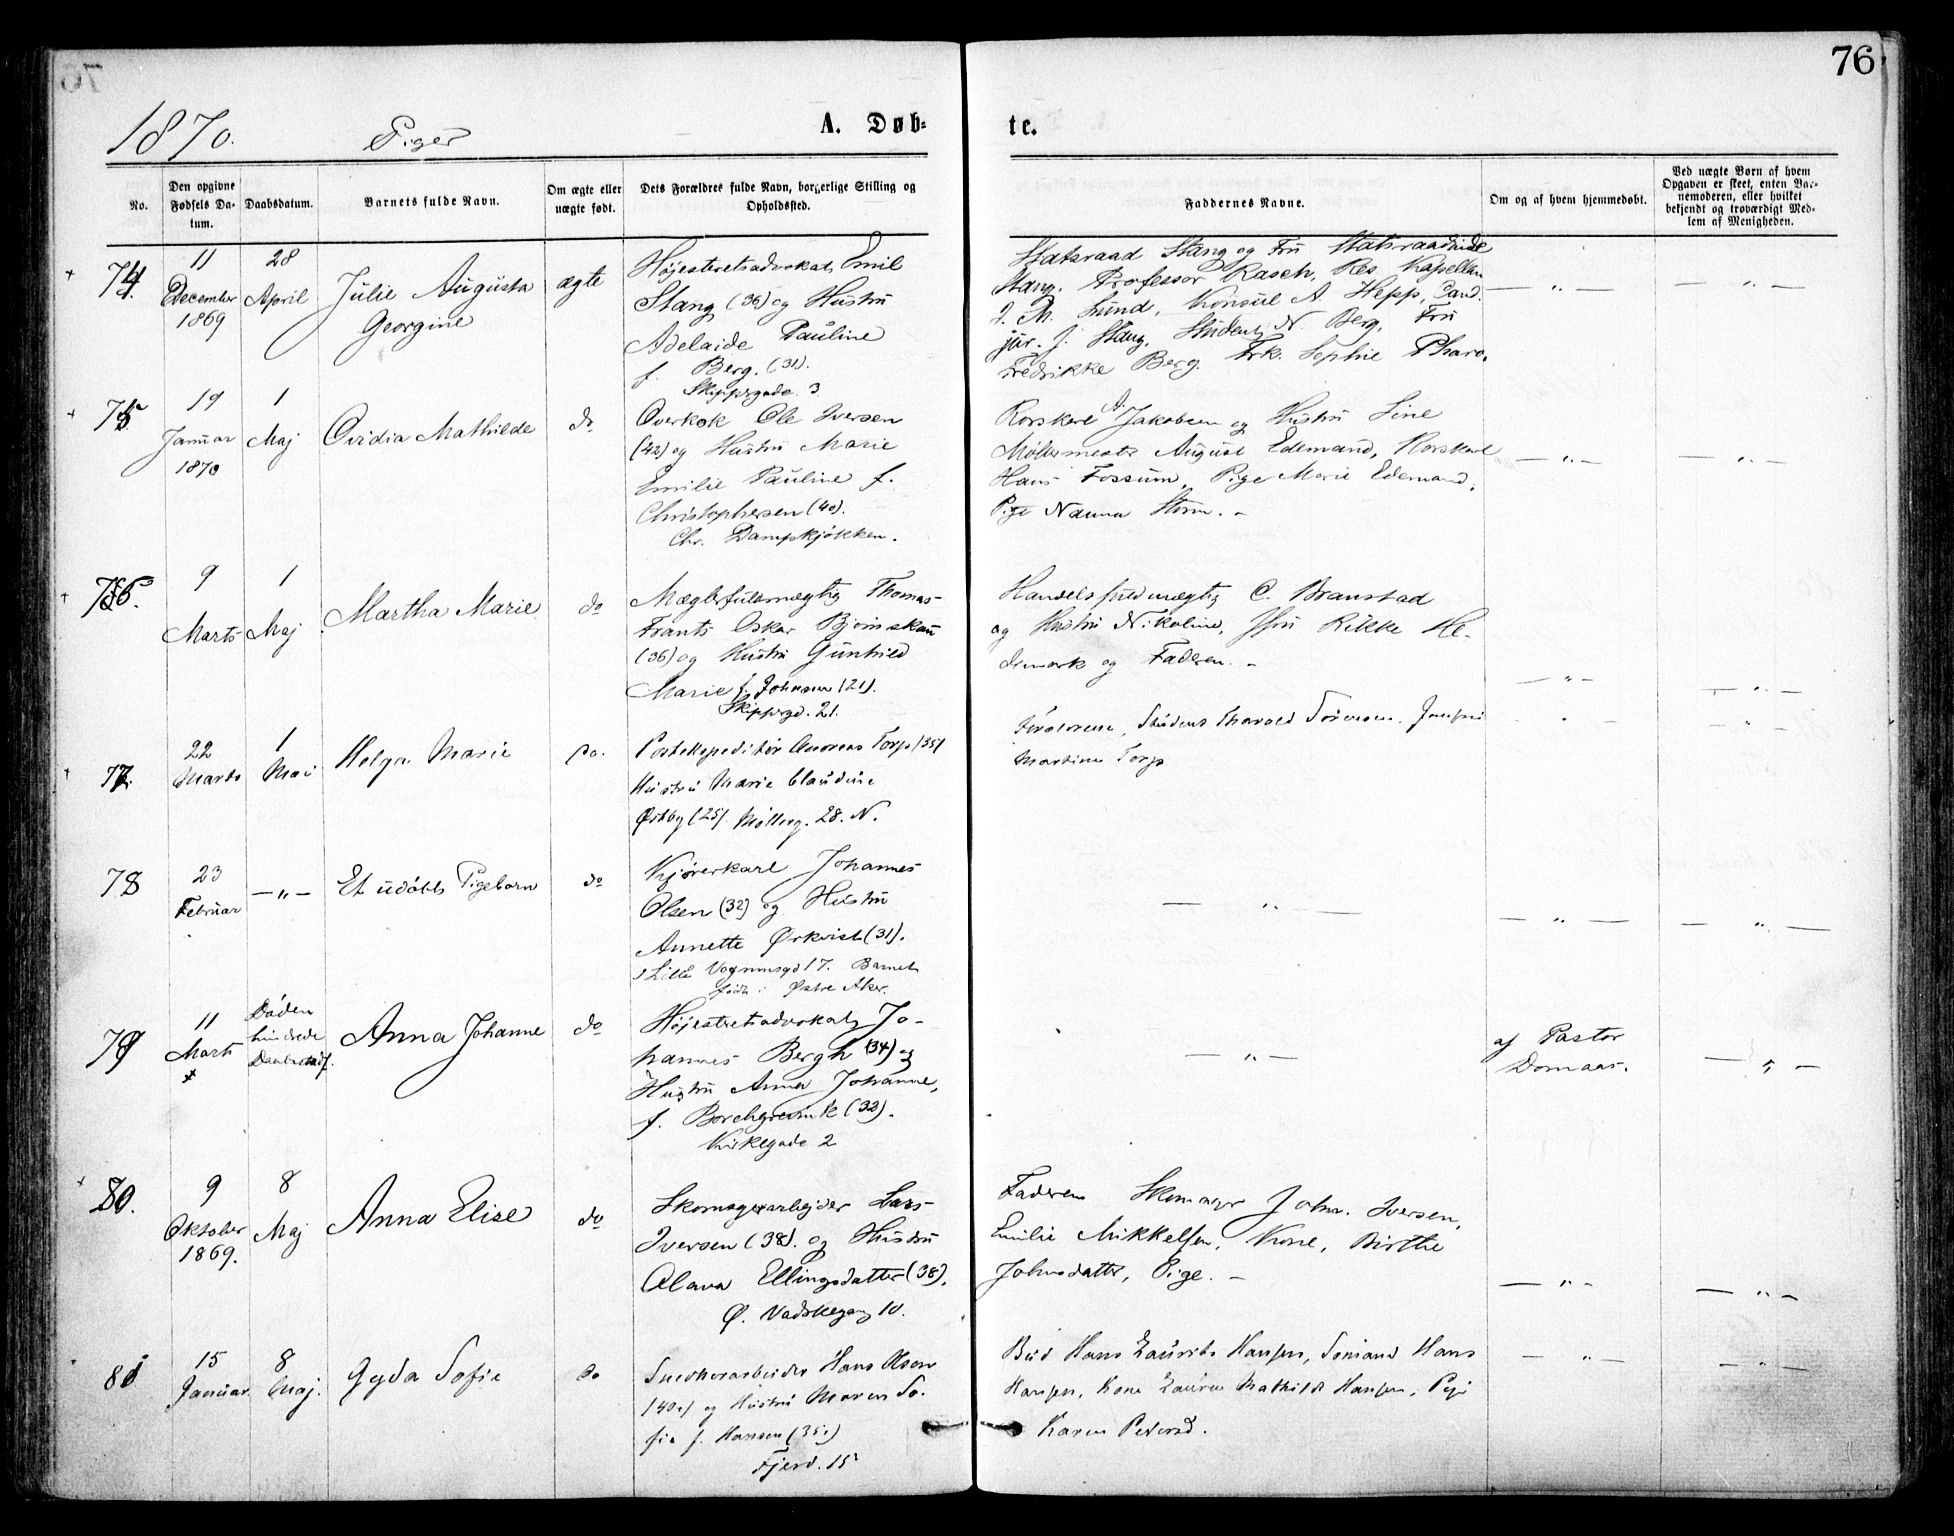 76
1870.
Piger
A. Døb=
te.
No.
Den opgivne
Fødsels Da-
tum.
Daabsdatum.
Barnets fulde Navn.
Om ægte eller
uægte født.
Dets Forældres fulde Navn, borgerlige Stilling og
Opholdssted.
Faddernes Navne.
Om og af hvem hjemmedøbt.
Ved uægte Børn af hvem
Opgaven er skeet, enten Bar-
nemoderen, eller hvilket
bekjendt og troværdigt Med-
lem af Menigheden.
74.
11
December
1869
28
April
Julie Augusta
Georgine
ægte
Højesteretsadvokat Emil
Stang (36) og Hustru
Adelaide Pauline
f. Berg. (31).
Skippergade 3
Statsraad Stang og Fru Statsraadinde
Stang. Professor Rasch, Res Kapellan
J. M. Lund, Konsul A. Hepp, Cand.
jur. J. Stang, Student N. Berg, Fru
Fredrikke Berg. Frk. Sophie Pharo.
— „ —
— „ —
75
19
Januar
1870
1
Maj
Ovidia Mathilde
do
Overkok Ole Iversen
(42) og Hustru Marie
Emilie Pauline f.
Christophersen (40).
Chr. Dampkjøkken.
Korskarl Jakobsen og Hustru Line
Møllermester August Edemand, Korskarl
Hans Fossum, Pige Marie Edemand,
Pige Nanna Storm. –
— „ —
— „ —
76.
9
Marts
1
Maj
Martha Marie
do
Mæglerfuldmægtig Thomas
Frants Oskar
(36) og Hustru Gunhild
Marie f. Johnsen (21).
Skippergd. 21.
Handelsfuldmægtig C. Branstad
og Hustru Nikoline, Fru Rikke He-
demark og Faderen. –
— „ —
— „ —
77.
22
Marts
1
Mai
Helga Marie
do.
Postexpeditør Andreas Torp (35)
Hustru Marie Claudine
Østby (25). Møllerg. 28. N.
Forældrene, Student Tharald Sørensen, Josefine
Martine Torp
„
„
78
23
Februar
— „ —
Et udøbt Pigebarn
do
Kjørerkarl Johannes
Olsen (32) og Hustru
Annette Ørkvist (31).
Lille Vognmsgd 17. Barnet
født i Østre Aker.
— „ —
— „ —
— „ —
79
11
Marts
Døden
hindrede
Daabsstadf.
Anna Johanne
do
Højesteretsadvokat Jo-
hannes Bergh (34) og
Hustru Anna Johanne,
f. Borchgrevink (32).
Kirkegade 2
— „ —
af Pastor
Domaas.
— „ —
80.
9
Oktober
1869.
8
Maj
Anna Elise
do
Skomagerarbejder Lars
Iversen (38). og Hustru
Olava Ellingsdatter (38).
Ø. Vadskegang 10.
Faderen Skomager John. Iversen,
Emilie Mikkelsen, Kone, Birthe
Johnsdatter, Pige. –
— „ —
— „ —
81
15
Januar
8
Maj.
Gyda Sofie
do
Snedkerarbeider Hans Olsen
(40.) og Hustru Maren So-
fie f. Hansen (35.)
Fjerd. 15
Bud Hans Laurits Hansen, Sømand Hans
Hansen, Kone Laura Mathilde Hansen, Pige
Karen Pedersd.
— „ —
— „ —